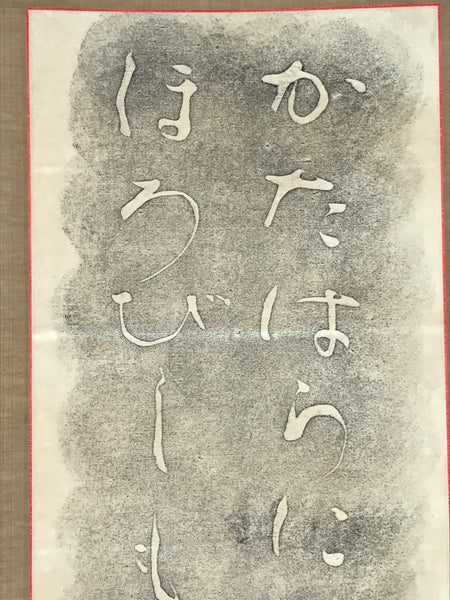 かたはらに
ほろびしも